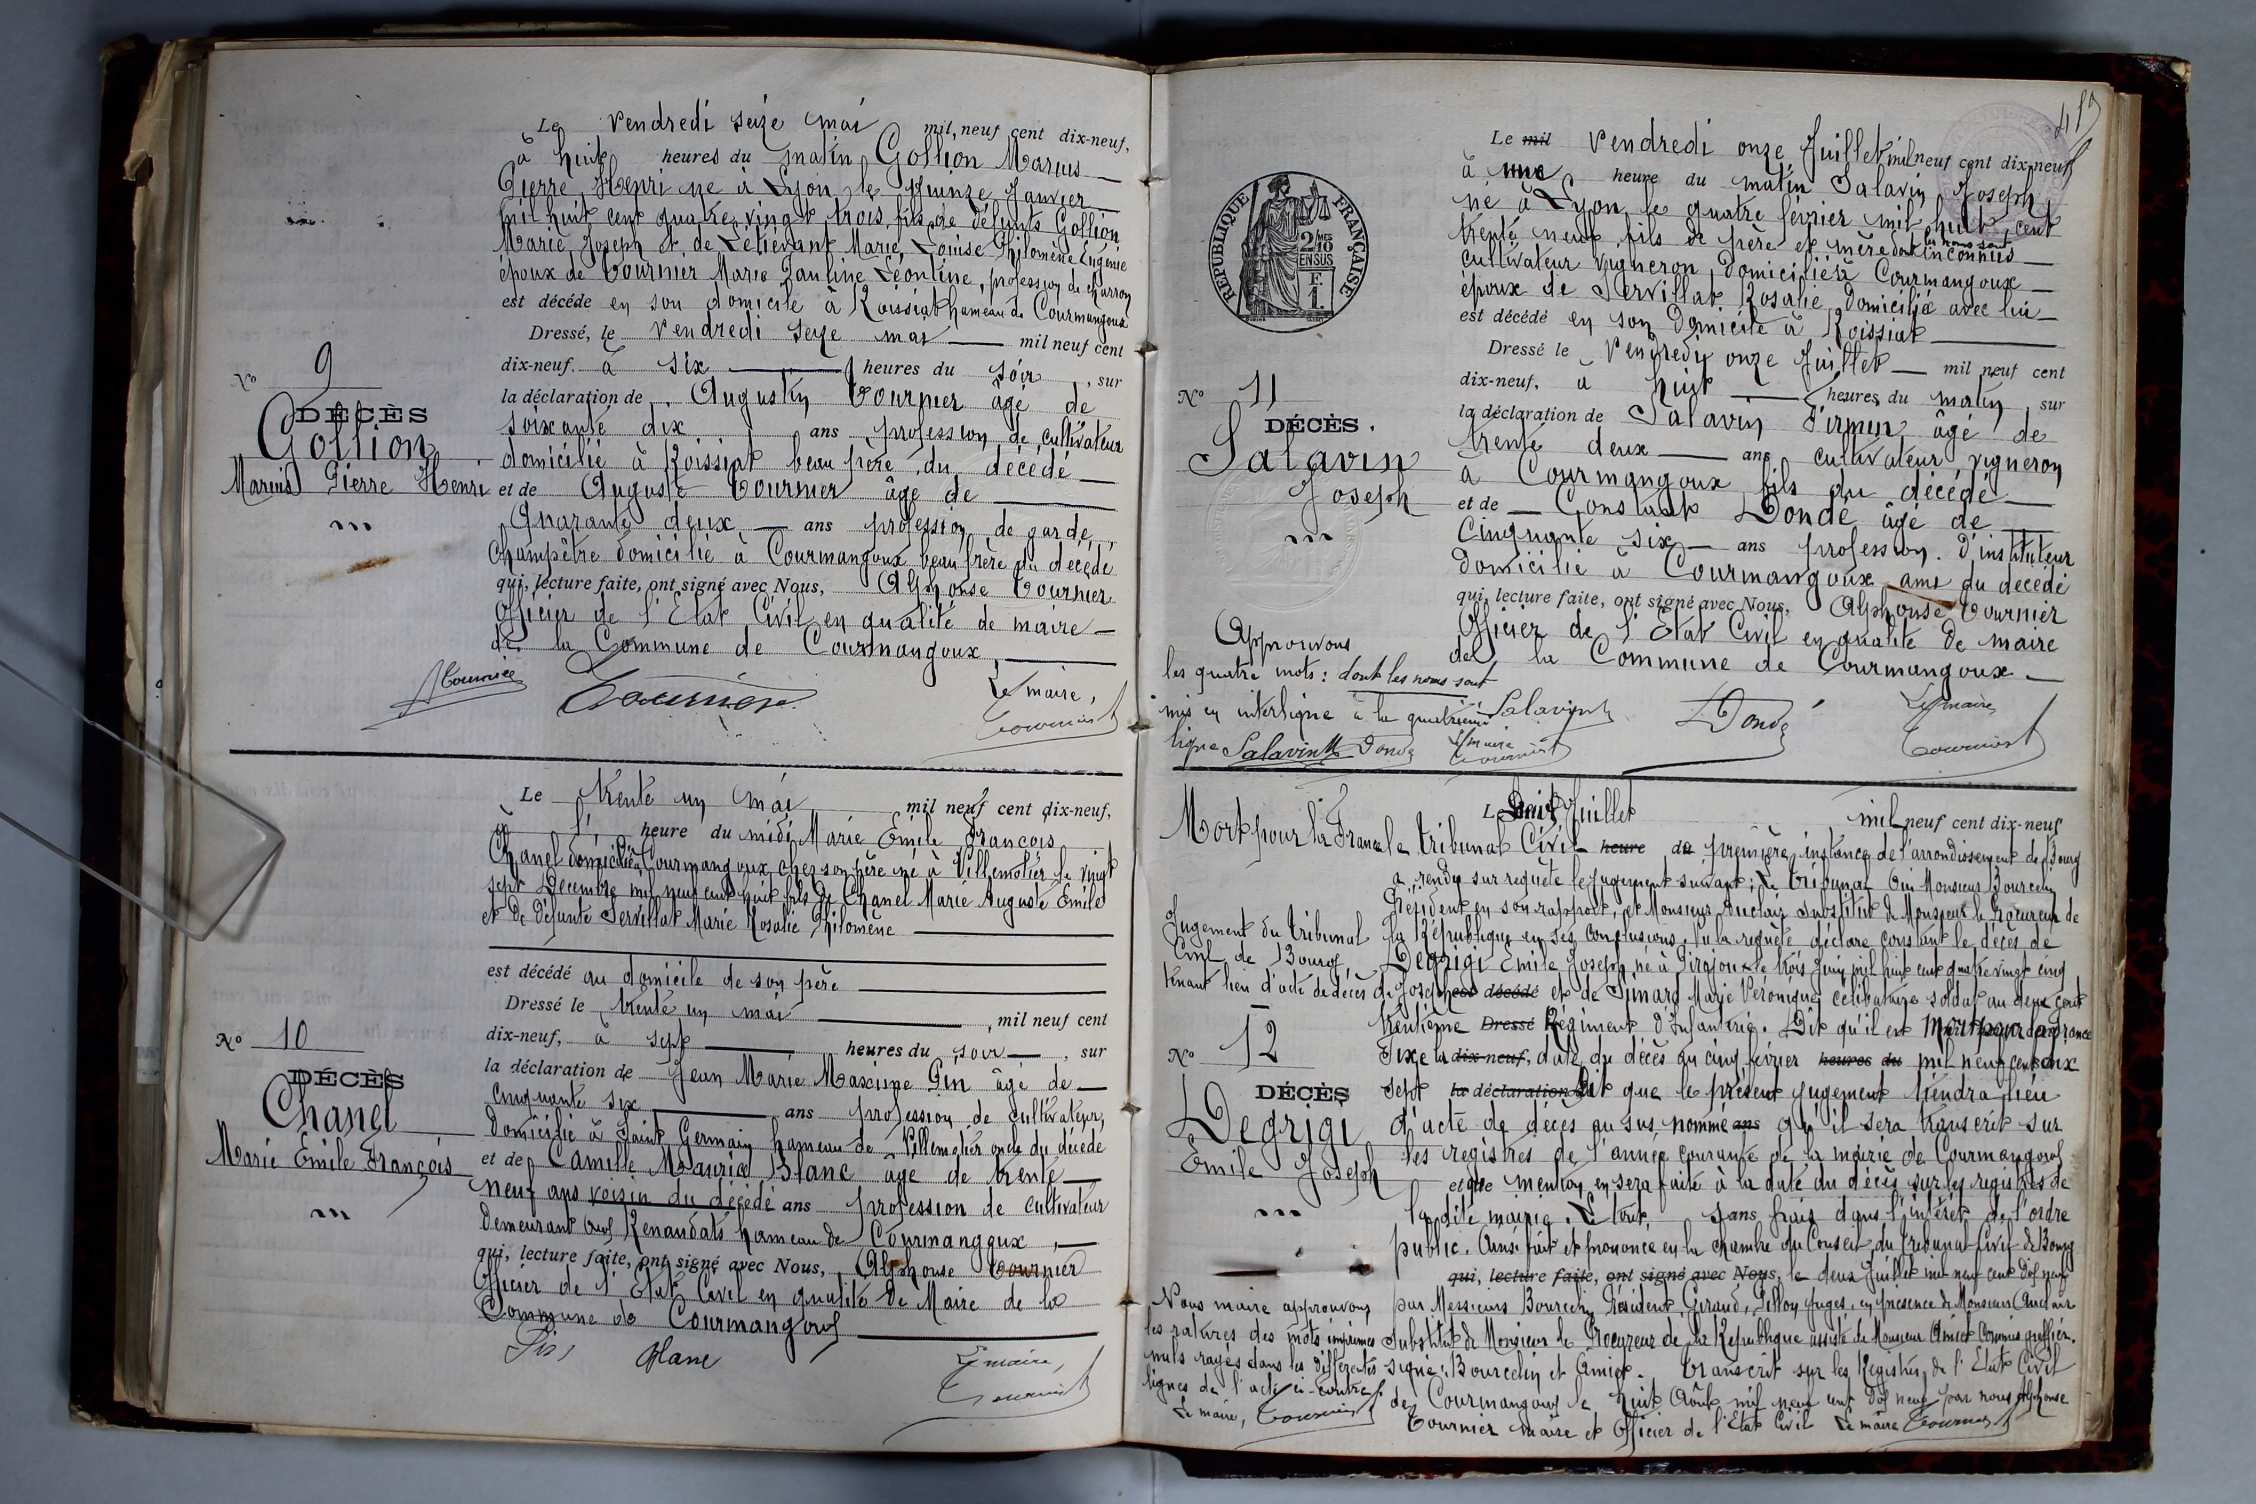 Le vendredi seize mai mil neuf cent dix-neuf,
à huit heures du matin, Gollion Marius
Pierre Henri né à Lyon le quinze Janvier
mil huit cent quatre vingt trois, fils de défunts Gollion
Marie Joseph et de Létiévant Marie Louise Philomène Eugénie
époux de Tournier Marie Pauline Léontine, profession de charron
est décédé en son domicile à Roissiat hameau de Courmangoux
Dressé, le vendredi seize mai mil neuf cent
dix-neuf. à six heures du soir, sur
la déclaration de Augustin Tournier âgé de
soixante dix ans profession de cultivateur
domicilié à Roissiat beau père du décédé
et de Auguste Tournier âgé de
Quarante deux ans profession de garde
Champêtre domicilié à Courmangoux beau frère du décédé
qui, lecture faite, ont signé avec Nous, Alphonse Tournier
Officier de l'Etat Civil en qualité de maire
de la Commune de Courmangoux,
Le maire,
ATournier Tournier Tournier
No 9
DÉCÈS
Gollion
Marius Pierre Henri
Le trente un mai mil neuf cent dix-neuf,
à heure du midi Marie Emile François
Chanel domicilié à Courmangoux chez son père né à Villemotier le vingt
sept Décembre mil neuf cent huit fils de Chanel Marie Auguste Emile
et de défunte Servillat Marie Rosalie Philomène
est décédé au domicile de son père
Dressé le trente un mai, mil neuf cent
dix-neuf, à sept heures du soir, sur
la déclaration de Jean Marie Maxime Pin âgé de
cinquante six ans profession de cultivateur,
domicilié à Saint Germain hameau de Villemotier oncle du décédé
et de Camille Maurice Blanc âgé de trente
neuf ans voisin du décédé ans profession de cultivateur
demeurant aux Renaudats hameau de Courmangoux,
qui, lecture faite, ont signé avec Nous, Alphonse Tournier
Officier de l'Etat Civil en qualité de Maire de la
Commune de Courmangoux
Pin Blanc Le maire,
Tournier
No 10
DÉCÈS
Chanel
Marie Emile François
RÉPUBLIQUE FRANÇAISE
2/10 MES
EN SUS
F.
1.
Le mil Vendredi onze Juillet mil neuf cent dix-neuf
à une heure du matin Salavin Joseph
né à Lyon le quatre février mil huit cent
trente neuf, fils de père et mère dont les noms sont inconnus
cultivateur vigneron, domicilié à Courmangoux
époux de Servillat Rosalie, domiciliée avec lui
est décédé en son domicile à Roissiat
Dressé le Vendredi onze Juillet mil neuf cent
dix-neuf, à huit heures du matin, sur
la déclaration de Salavin Firmin âgé de
trente deux ans cultivateur vigneron
à Courmangoux fils du décédé
et de Constant Dondé âgé de
Cinquante six ans profession d'instituteur
domicilié à Courmangoux ami du décédé
qui, lecture faite, ont signé avec Nous, Alphonse Tournier
Officier de l'Etat Civil en qualité de maire
de la Commune de Courmangoux
Salavin Dondé Le maire,
Tournier
No 11
DÉCÈS.
Salavin
Joseph
Approuvons
les quatre mots: dont les noms sont
mis en interligne à la quatrième
ligne Salavin Dondé Le maire
Tournier
Le Huit Juillet mil neuf cent dix-neuf
Mort pour la France
le tribunal Civil heure du première instance de l'arrondissement de Bourg
a rendu sur requête le jugement suivant: Le tribunal Ouï Monsieur Bourcelin
Président en son rapport, et Monsieur Auclair substitut de Monsieur le Procureur de
la République en ses conclusions, Vu la requête déclare constant le décès de
Degrigi Emile Joseph né à Pirajoux le trois Juin mil huit cent quatre vingt cinq
de Joseph est décédé et de Punard Marie Véronique, célibataire soldat au deux cent
trentième Dressé Régiment d'Infanterie. Dit qu'il est Mort pour la France
Fixe la dix-neuf, date du décès au cinq février heures du mil neuf cent dix
sept la déclaration Dit que le présent jugement tiendra lieu
d'acte de décès au sus nommé ans qu'il sera transcrit sur
les registres de l'année courante de la mairie de Courmangoux
et que mention en sera faite à la date du décès sur les registres de
la dite mairie. Le tout sans frais dans l'intérêt de l'ordre
public. Ainsi fait et prononcé en la chambre du Conseil du Tribunal Civil de Bourg
qui, lecture faite, ont signé avec Nous, le deux Juillet mil neuf cent dix neuf
par Messieurs Bourcelin Président, Giraud, Pilloy Juges, en présence de Monsieur Auclair
Substitut de Monsieur le Procureur de la République assisté de Monsieur Amiot Commis greffier.
Signé: Bourcelin et Amiot. Transcrit sur les Registres de l'Etat Civil
de Courmangoux le huit Août mil neuf cent dix neuf par nous Alphonse
Tournier maire et Officier de l'Etat Civil Le maire Tournier
Jugement du tribunal
Civil de Bourg
tenant lieu d'acte de décès
No 12
DÉCÈS
Degrigi
Emile Joseph
Nous maire approuvons
les ratures des mots imprimés
nuls rayés dans les différentes
lignes de l'acte ci-contre
Le maire, Tournier